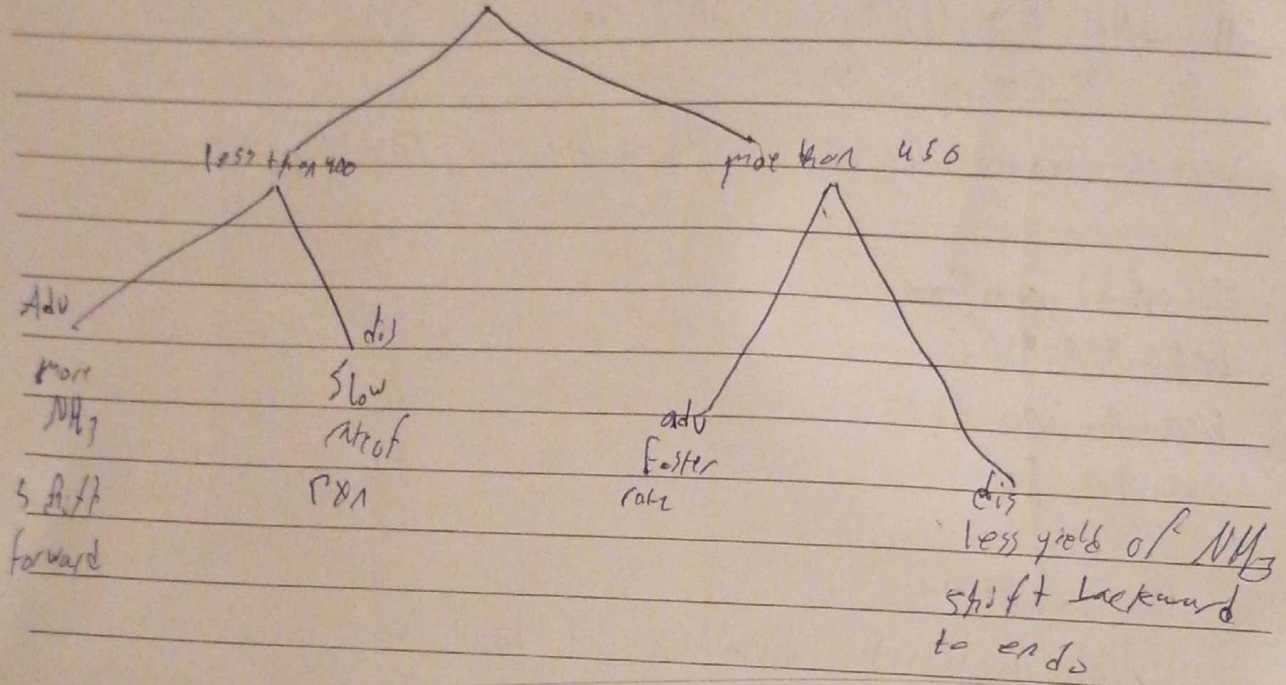 less than 400
more than 450
Adv
more
NH3
shift
forward
dis
slow
rate of
rxn
adv
Faster
rate
dis
less yield of NH3
shift backward
to endo